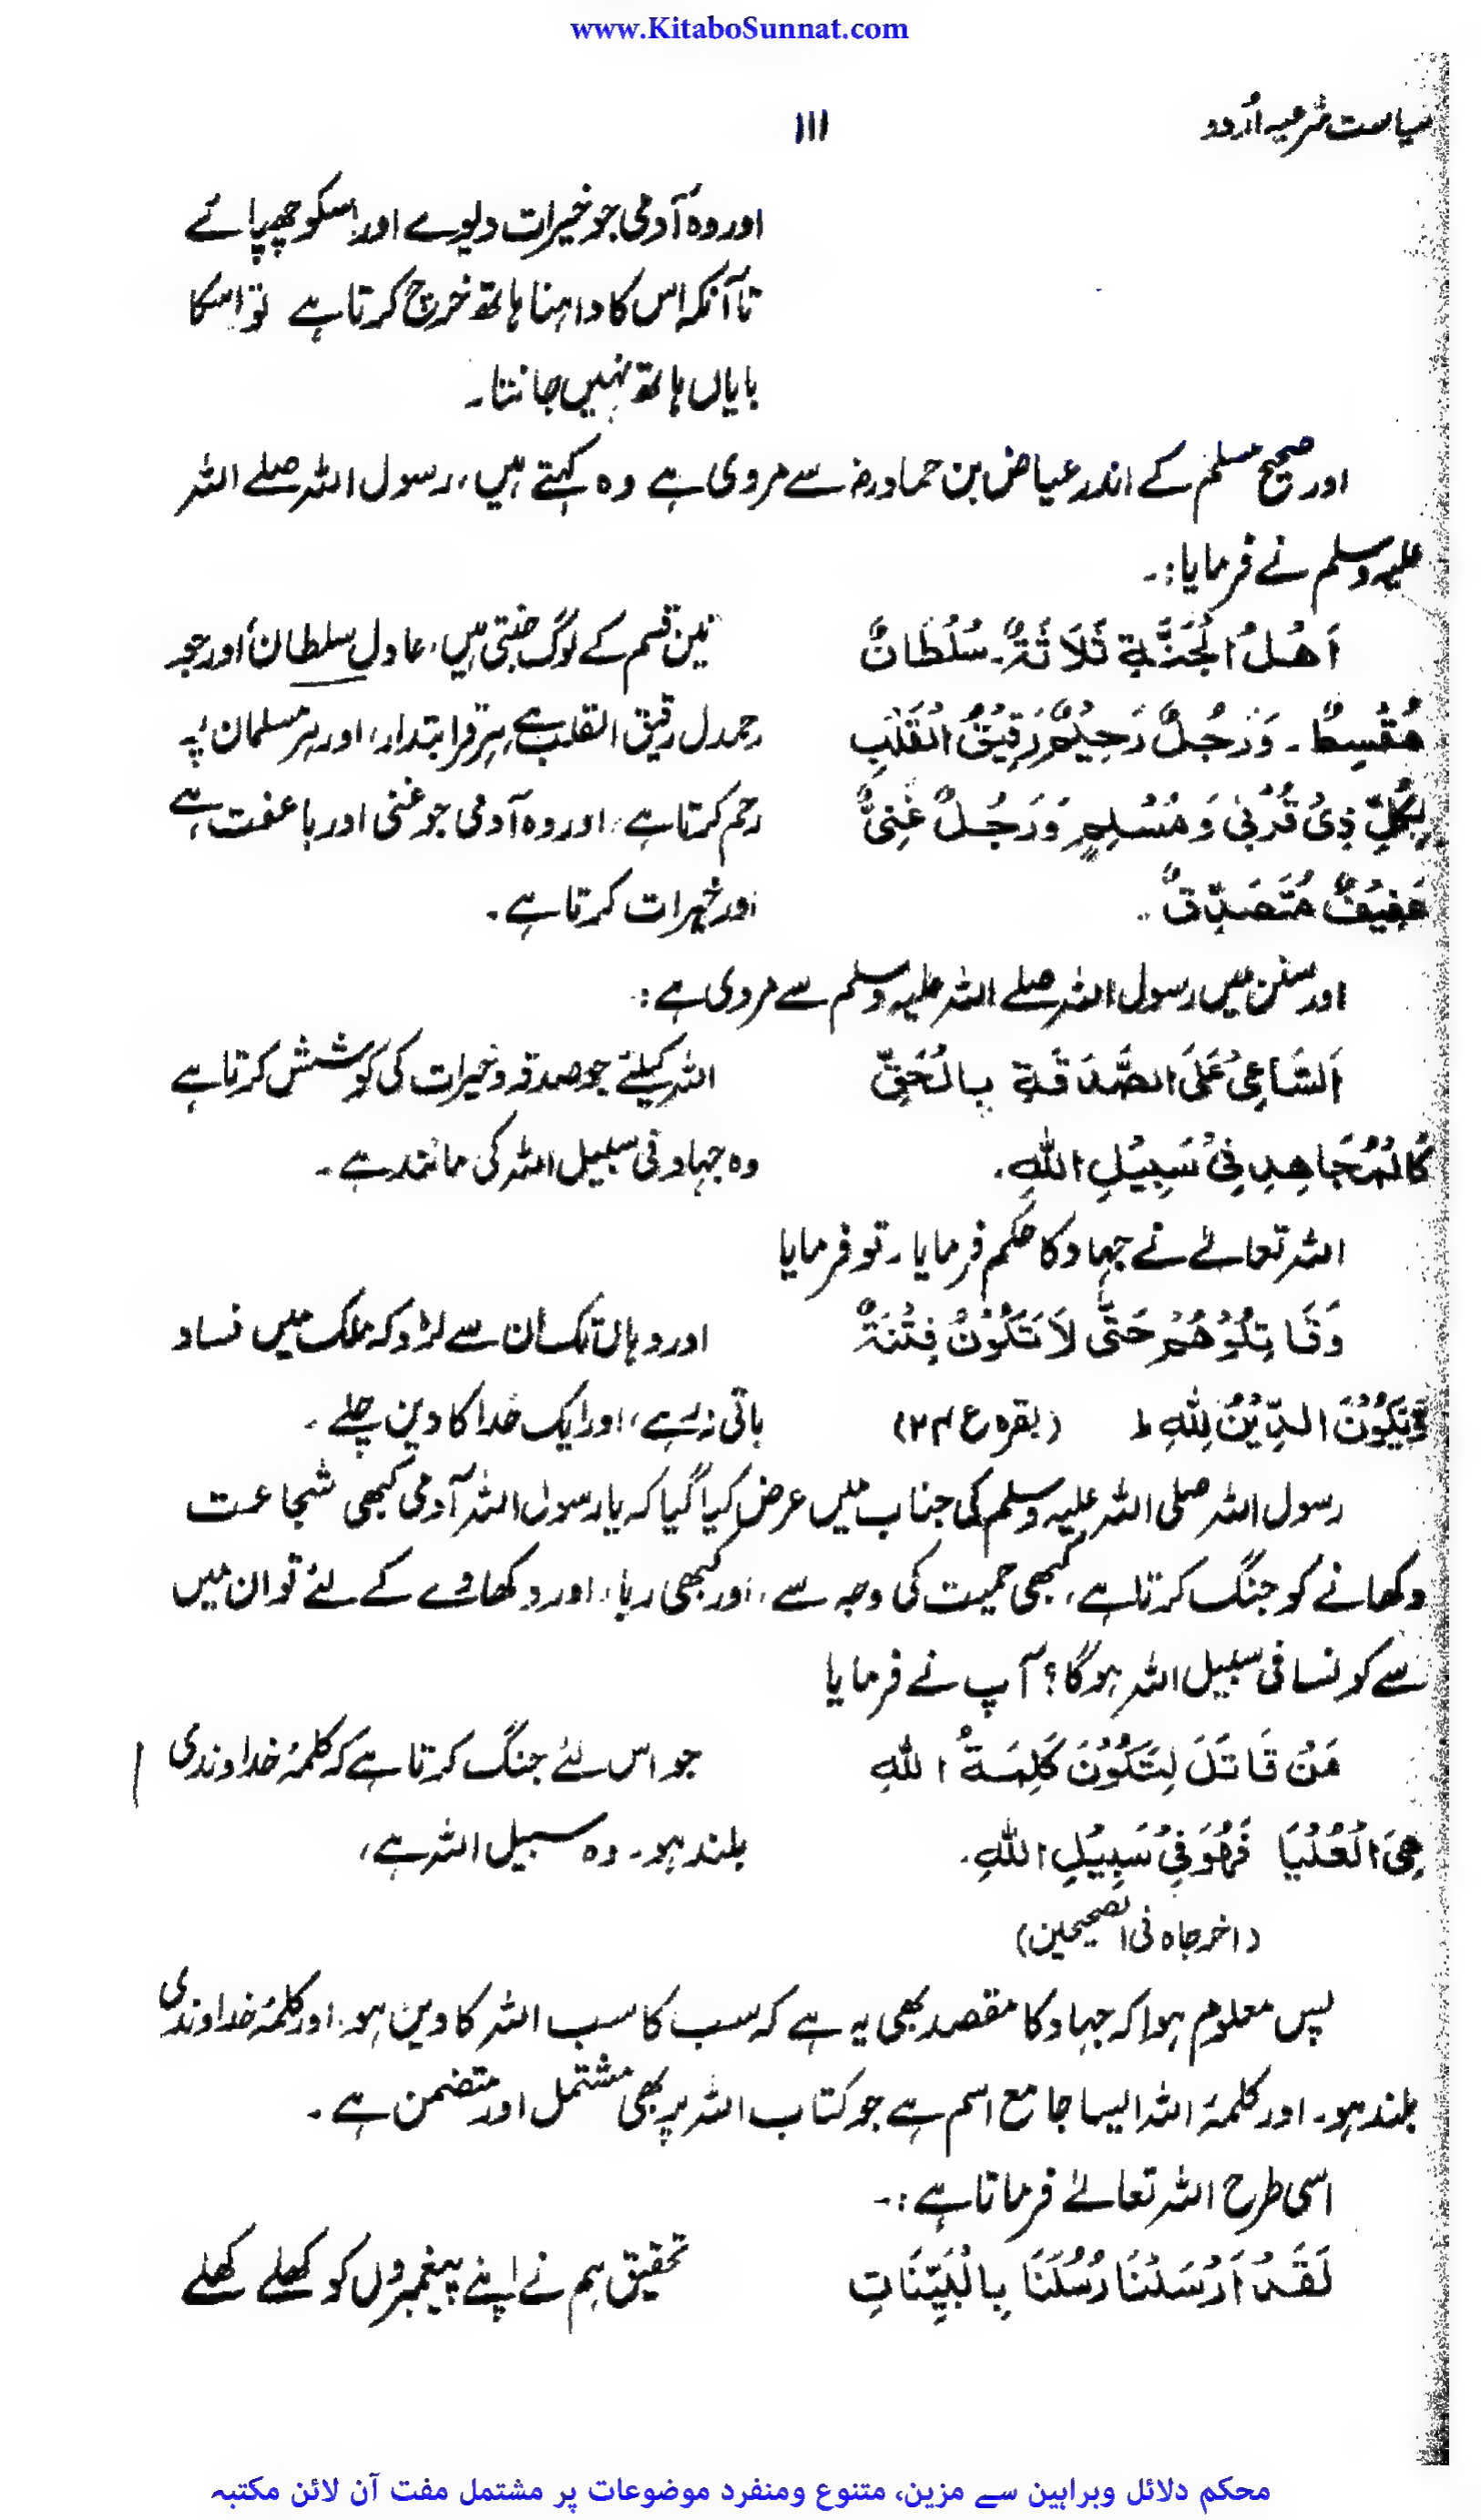 www.KitaboSunnat.com
سیاست شرعیہ اُردو
۱۱۱
اور وہ آدمی جو خیرات دیوے اور اسکو چھپائے
تا آنکہ اس کا داہنا ہاتھ خرچ کرتا ہے تو اسکا
بایاں ہاتھ نہیں جانتا۔
اور صحیح مسلم کے اندر عیاض بن حماد رضہ سے مروی ہے وہ کہتے ہیں، رسول اللہ صلے اللہ
علیہ وسلم نے فرمایا:۔
اَهْلُ الْجَنَّةِ ثَلَاثَةٌ۔ سُلْطَانٌ
مُقْسِطٌ۔ وَرَجُلٌ رَحِيْمٌ رَقِيْقُ الْقَلْبِ
لِكُلِّ ذِیْ قُرْبٰی وَ مُسْلِمٍ وَرَجُلٌ غَنِیٌّ
عَفِيْفٌ مُتَصَدِّقٌ۔
تین قسم کے لوگ جنتی ہیں، عادل سلطان اور جو
رحمدل رقیق القلب ہے ہر قرابتدار، اور ہر مسلمان پہ
رحم کرتا ہے، اور وہ آدمی جو غنی اور باعفت ہے
اور خیرات کرتا ہے۔
اور سنن میں رسول اللہ صلے اللہ علیہ وسلم سے مروی ہے:
اَلسَّاعِیْ عَلَی الصَّدَقَةِ بِالْحَقِّ
كَالْمُجَاهِدِ فِیْ سَبِيْلِ اللهِ۔
اللہ کیلئے جو صدقہ و خیرات کی کوشش کرتا ہے
وہ جہاد فی سبیل اللہ کی مانند ہے۔
اللہ تعالےٰ نے جہاد کا حکم فرمایا۔ تو فرمایا
وَقَاتِلُوْهُمْ حَتّٰی لَا تَكُوْنَ فِتْنَةٌ
وَّيَكُوْنَ الدِّيْنُ لِلهِ ط (بقرہ ع ۲۴)
اور وہاں تک ان سے لڑو کہ ملک میں فساد
باقی نہ رہے، اور ایک خدا کا دین چلے۔
رسول اللہ صلی اللہ علیہ وسلم کی جناب میں عرض کیا گیا کہ یا رسول اللہ آدمی کبھی شجاعت
دکھانے کو جنگ کرتا ہے، کبھی حمیت کی وجہ سے، اور کبھی ریا، اور دکھاوے کے لئے تو ان میں
سے کونسا فی سبیل اللہ ہوگا؟ آپ نے فرمایا
مَنْ قَاتَلَ لِتَكُوْنَ كَلِمَةُ اللهِ
هِیَ الْعُلْيَا فَهُوَ فِیْ سَبِيْلِ اللهِ۔
(اخرجاہ فی الصحیحین)
جو اس لئے جنگ کرتا ہے کہ کلمۂ خداوندی
بلند ہو۔ وہ سبیل اللہ ہے،
پس معلوم ہوا کہ جہاد کا مقصد بھی یہ ہے کہ سب کا سب اللہ کا دین ہو۔ اور کلمۂ خداوندی
بلند ہو۔ اور کلمۂ اللہ ایسا جامع اسم ہے جو کتاب اللہ پر بھی مشتمل اور متضمن ہے۔
اسی طرح اللہ تعالےٰ فرماتا ہے:۔
لَقَدْ اَرْسَلْنَا رُسُلَنَا بِالْبَيِّنَاتِ
تحقیق ہم نے اپنے پیغمبروں کو کھلے کھلے
محکم دلائل وبراہین سے مزین، متنوع ومنفرد موضوعات پر مشتمل مفت آن لائن مکتبہ